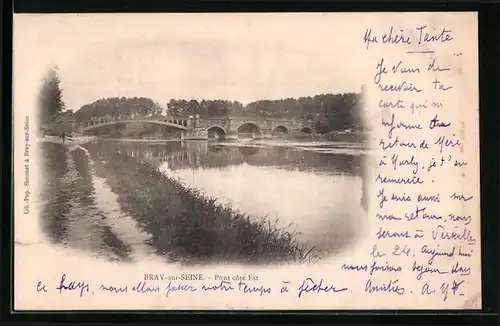 Ma chère Tante
Je viens de
recevoir ta
carte qui m'
informe ton
retour de Mer
à Marly, je t'en
remercie.
Je suis aussi sur
mon retour, nous
serons à Versailles
le 24. Aujourd'hui
nous faisons séjour dans
ce pays, nous allons passer notre temps à pêcher. Amitiés. A. Y
BRAY-sur-SEINE. - Pont côté Est
Lib.-Pap. Simonet à Bray-sur-Seine